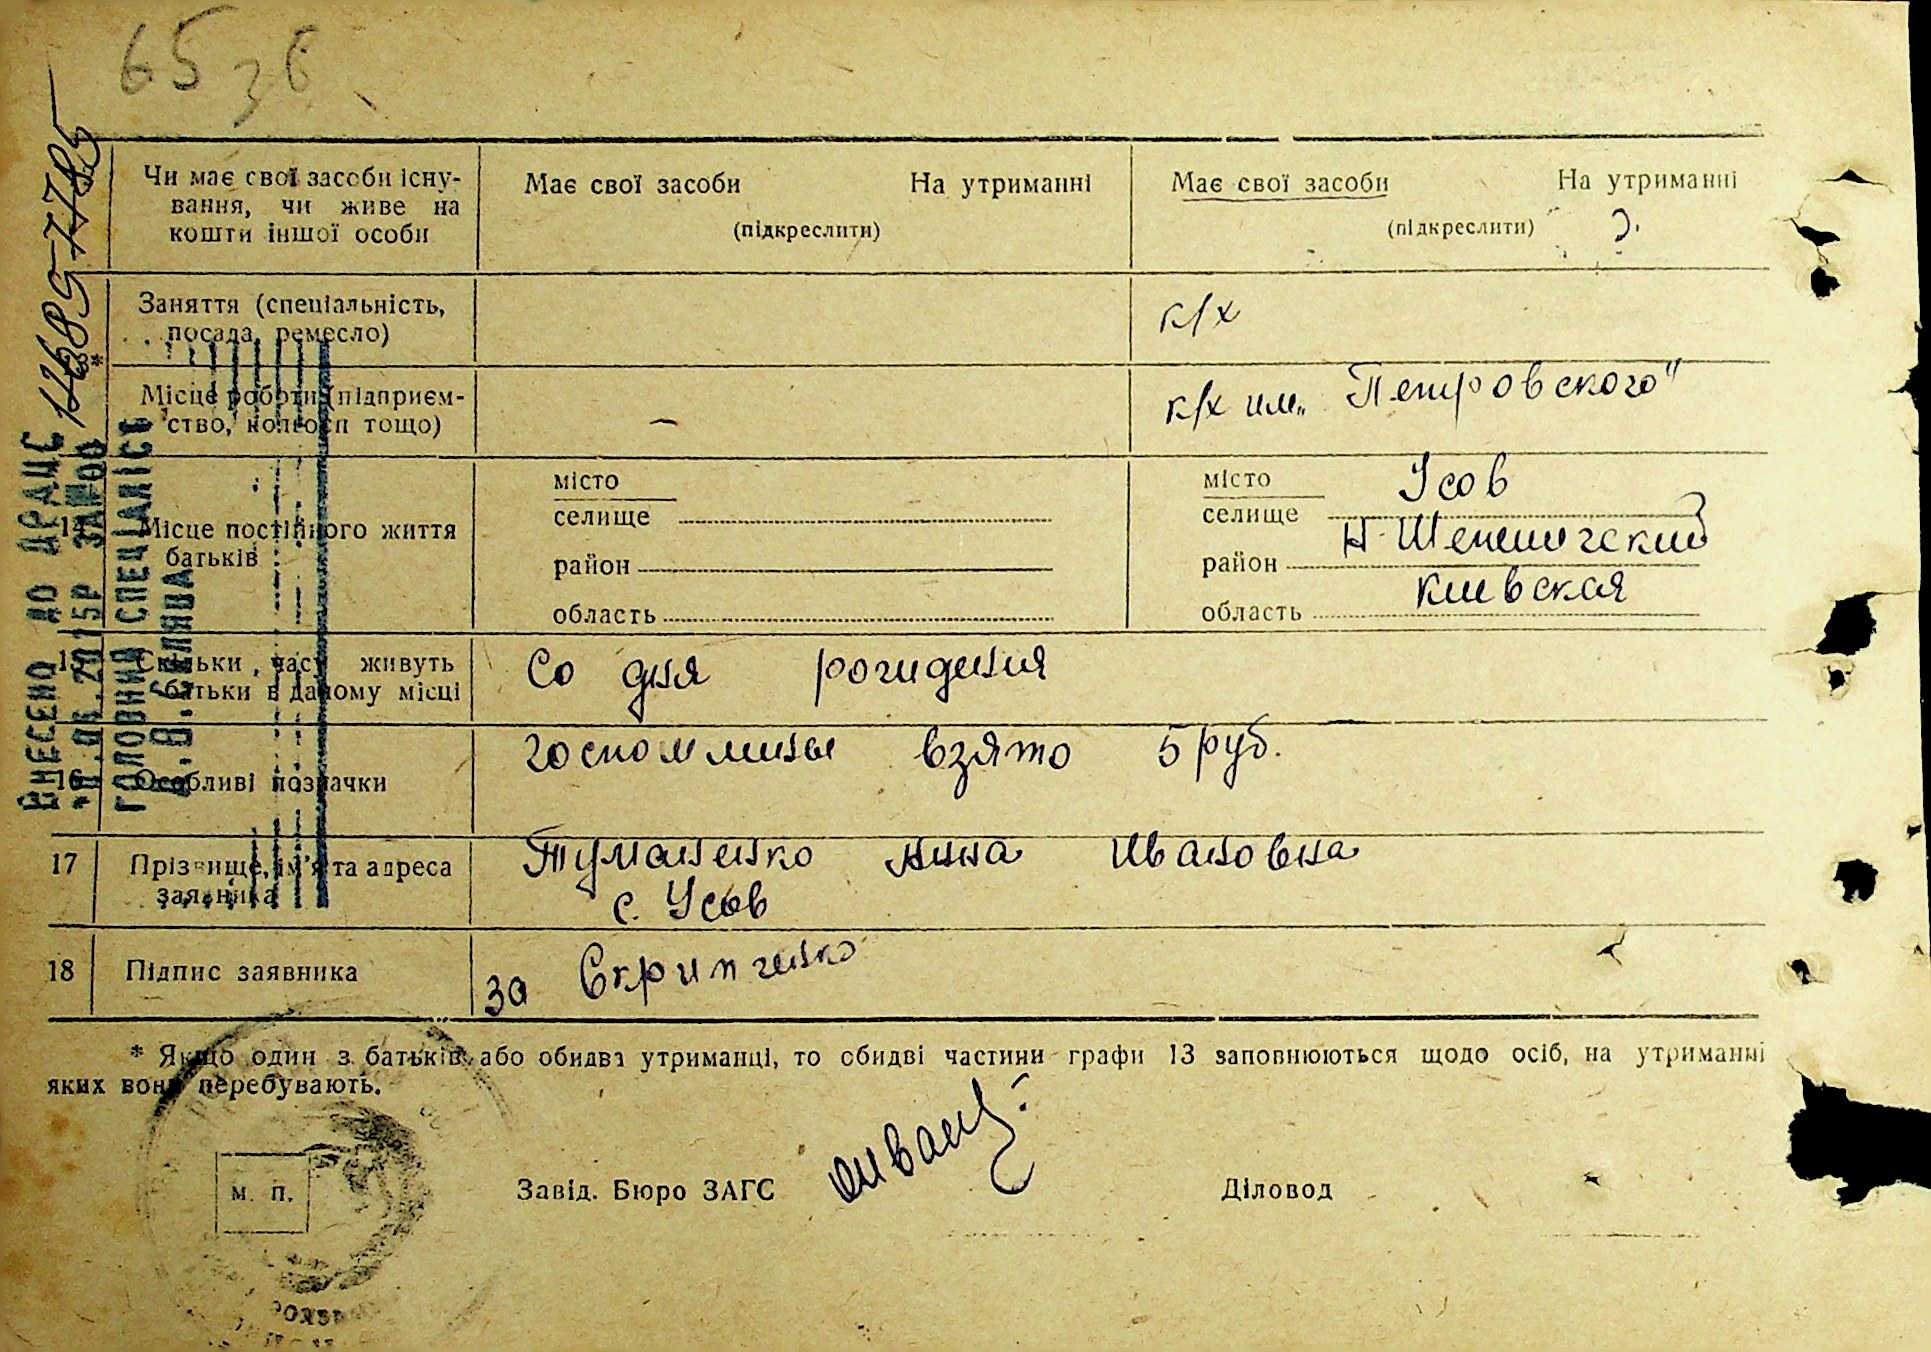 65 зб
Чи має свої засоби існу-
вання, чи живе на
кошти іншої особи
Має свої засоби На утриманні
(підкреслити)
Має свої засоби На утриманні
(підкреслити)
Заняття (спеціальність,
посада, ремесло)
к/х
Місце роботи (підприєм-
ство, колгосп тощо)
—
к/х им. „Петровского"
14
Місце постійного життя
батьків
місто
селище
район
область
місто
селище
Усов
район Н-Шепеличский
область Киевская
15
Скільки часу живуть
батьки в даному місці
Со дня рождения
16
Особливі позначки
госпошлины взято 5 руб.
17
Прізвище, ім'я та адреса
заявника
Туманенко Анна Ивановна
с. Усов
18
Підпис заявника
за Скрипченко
* Якщо один з батьків або обидва утриманці, то обидві частини графи 13 заповнюються щодо осіб, на утриманні
яких вони перебувають.
М. П.
Завід. Бюро ЗАГС
Діловод
ВНЕСЕНО ДО ДРАЦС
ГОЛОВНИЙ СПЕЦІАЛІСТ